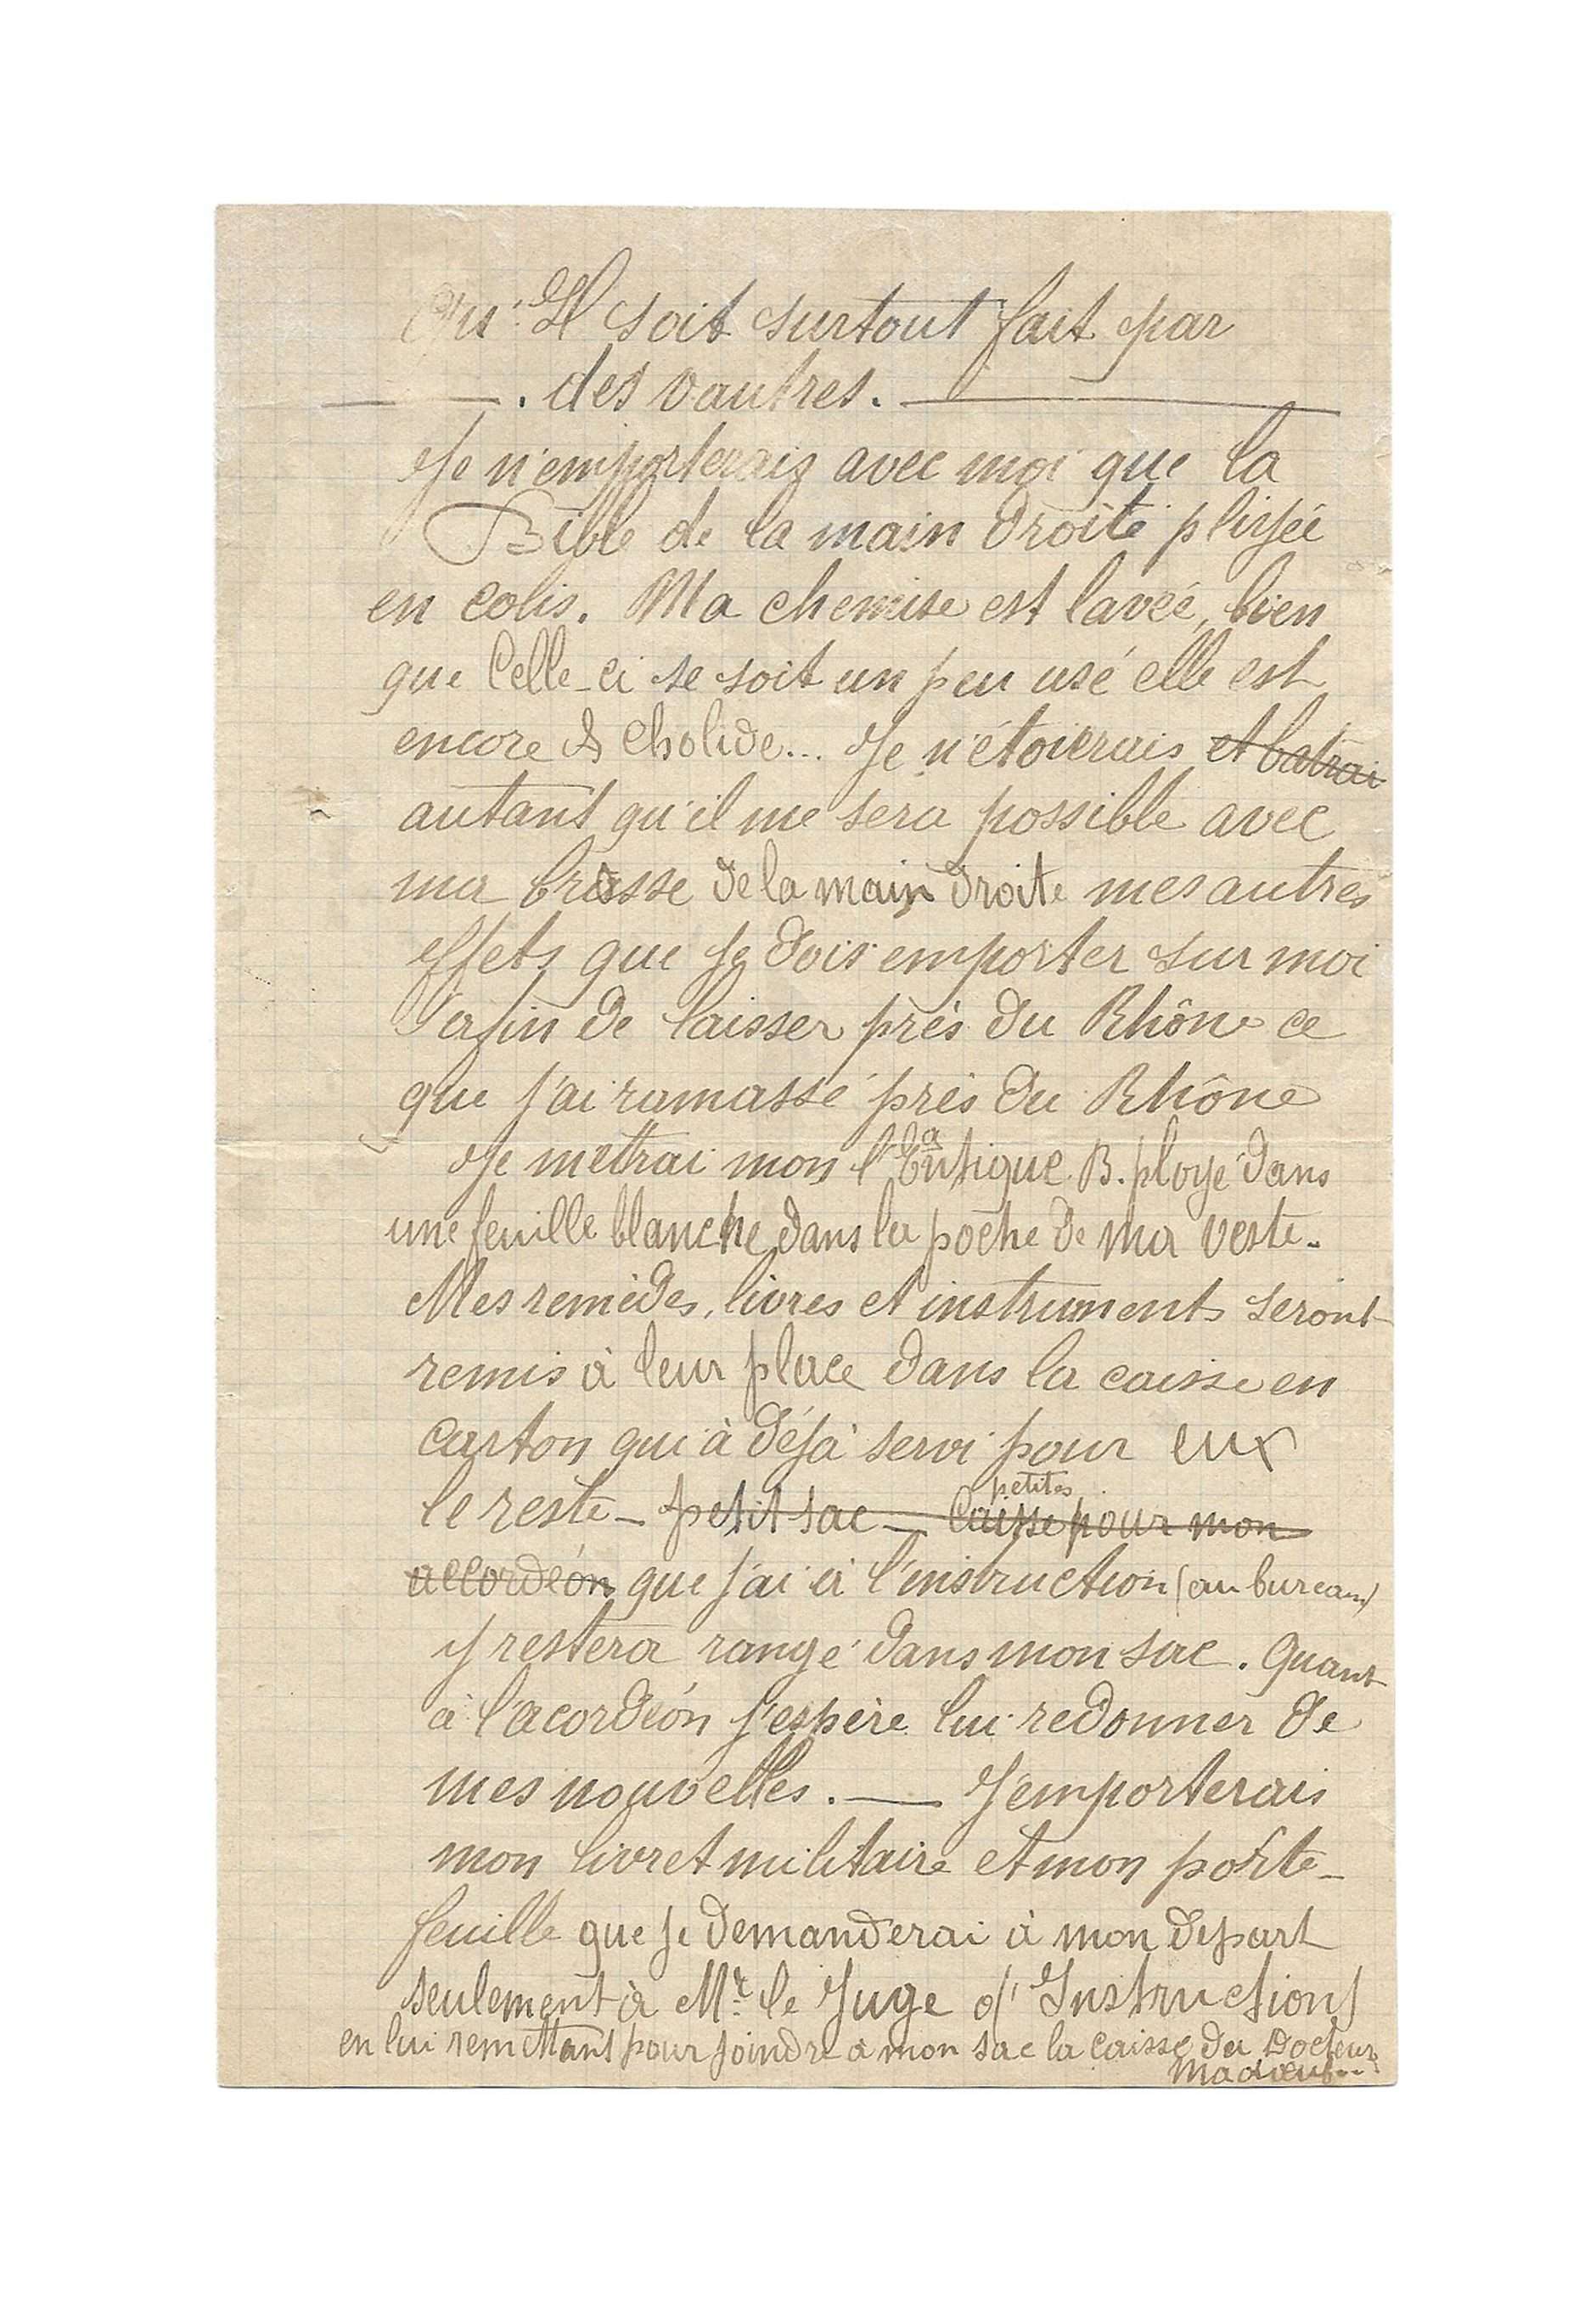 Qu'Il soit surtout fait par
. des vautres.
Je n'emporterais avec moi que la
Bible de la main droite pliyée
en colis. Ma chemise est lavée, bien
que Celle-ci se soit un peu usé elle est
encore cholide... Je n'étoierais et batrai
autant qu'il me sera possible avec
ma brosse de la main droite mes autres
effets que je dois emporter sur moi
afin de laisser près du Rhône ce
que j'ai ramassé près du Rhône
Je mettrai mon B. ployé dans
une feuille blanche dans la poche de ma veste.
Mes remèdes, livres et instruments seront
remis à leur place dans la caisse en
carton qui à déjà servi pour eux
le reste - petit sac - petites caisse pour mon
accordéon que j'ai à l'instruction (au bureau)
y restera rangé dans mon sac. Quant
à l'acordéon j'espère lui redonner de
mes nouvelles. — J'emporterais
mon livret militaire et mon porte-
feuille que je demanderai à mon départ
seulement à Mr. le Juge d'Instruction
en lui remettant pour joindre à mon sac la caisse du Docteur
Madeuf..